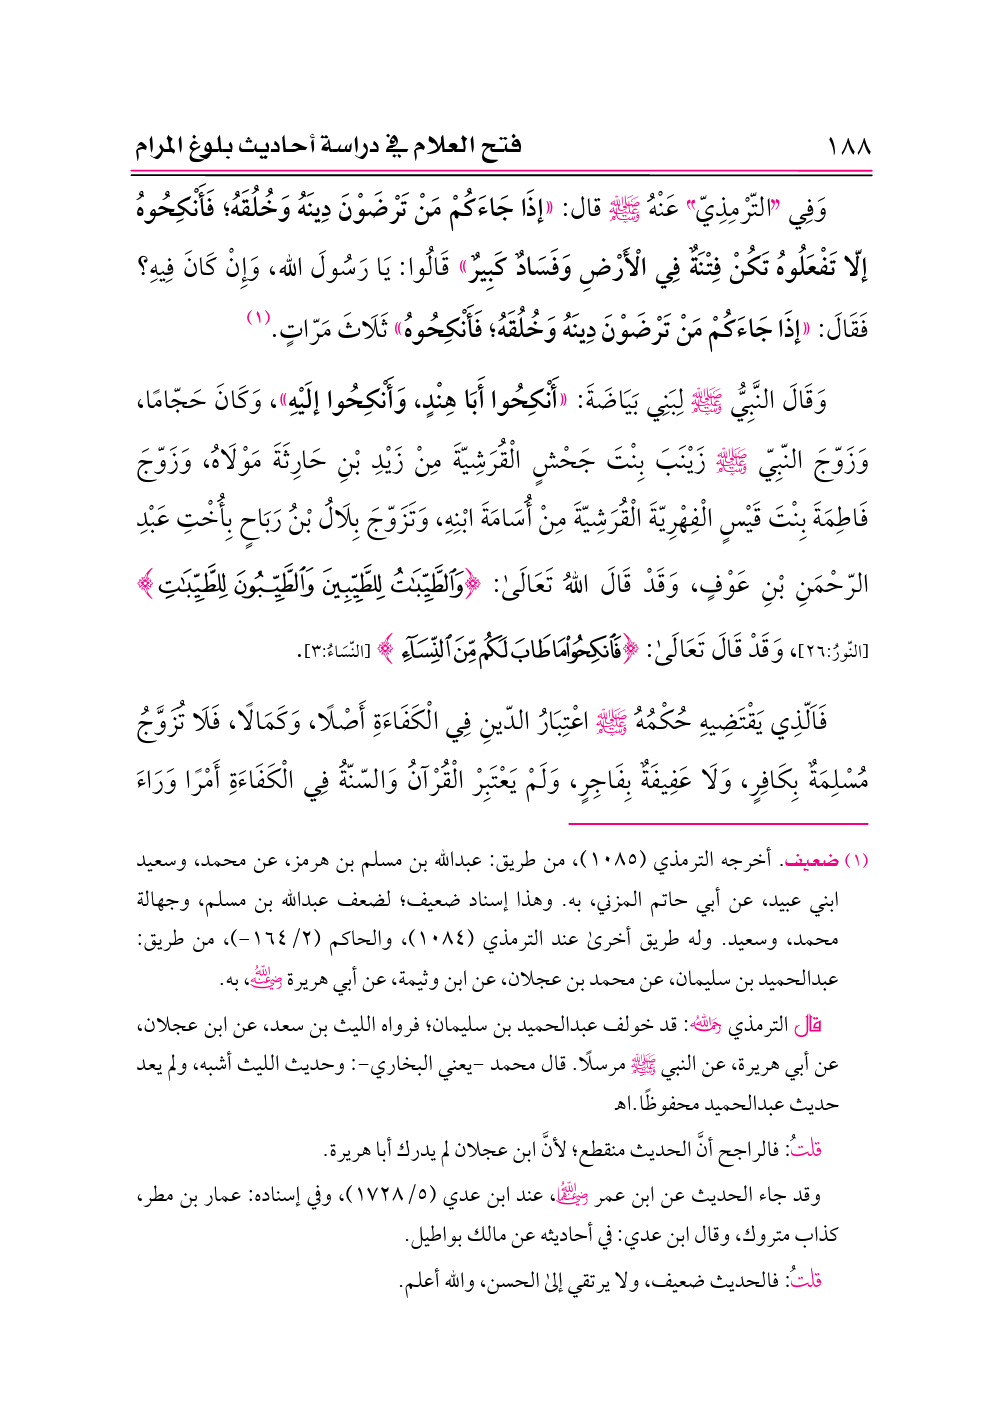 ١٨٨ فتح العلام في دراسة أحاديث بلوغ المرام
وَفِي ”التِّرْمِذِيّ“ عَنْهُ ﷺ قال: «إِذَا جَاءَكُمْ مَنْ تَرْضَوْنَ دِينَهُ وَخُلُقَهُ؛ فَأَنْكِحُوهُ
إلّا تَفْعَلُوهُ تَكُنْ فِتْنَةٌ فِي الْأَرْضِ وَفَسَادٌ كَبِيرٌ» قَالُوا: يَا رَسُولَ الله، وَإِنْ كَانَ فِيهِ؟
فَقَالَ: «إذَا جَاءَكُمْ مَنْ تَرْضَوْنَ دِينَهُ وَخُلُقَهُ؛ فَأَنْكِحُوهُ» ثَلَاثَ مَرّاتٍ.(١)
وَقَالَ النَّبِيُّ ﷺ لِبَنِي بَيَاضَةَ: «أَنْكِحُوا أَبَا هِنْدٍ، وَأَنْكِحُوا إلَيْهِ»، وَكَانَ حَجّامًا،
وَزَوّجَ النّبِيّ ﷺ زَيْنَبَ بِنْتَ جَحْشٍ الْقُرَشِيّةَ مِنْ زَيْدِ بْنِ حَارِثَةَ مَوْلَاهُ، وَزَوّجَ
فَاطِمَةَ بِنْتَ قَيْسٍ الْفِهْرِيّةَ الْقُرَشِيّةَ مِنْ أُسَامَةَ ابْنِهِ، وَتَزَوّجَ بِلَالُ بْنُ رَبَاحٍ بِأُخْتِ عَبْدِ
الرّحْمَنِ بْنِ عَوْفٍ، وَقَدْ قَالَ اللهُ تَعَالَىٰ: ﴿وَٱلطَّيِّبَٰتُ لِلطَّيِّبِينَ وَٱلطَّيِّبُونَ لِلطَّيِّبَٰتِ﴾
[النّورُ:٢٦]، وَقَدْ قَالَ تَعَالَىٰ: ﴿فَٱنكِحُوا۟ مَا طَابَ لَكُم مِّنَ ٱلنِّسَآءِ﴾ [النّسَاءُ:٣].
فَالّذِي يَقْتَضِيهِ حُكْمُهُ ﷺ اعْتِبَارُ الدّينِ فِي الْكَفَاءَةِ أَصْلًا، وَكَمَالًا، فَلَا تُزَوَّجُ
مُسْلِمَةٌ بِكَافِرٍ، وَلَا عَفِيفَةٌ بِفَاجِرٍ، وَلَمْ يَعْتَبِرْ الْقُرْآنُ وَالسّنّةُ فِي الْكَفَاءَةِ أَمْرًا وَرَاءَ
(١) ضعيف. أخرجه الترمذي (١٠٨٥)، من طريق: عبدالله بن مسلم بن هرمز، عن محمد، وسعيد
ابني عبيد، عن أبي حاتم المزني، به. وهذا إسناد ضعيف؛ لضعف عبدالله بن مسلم، وجهالة
محمد، وسعيد. وله طريق أخرىٰ عند الترمذي (١٠٨٤)، والحاكم (٢/ ١٦٤-)، من طريق:
عبدالحميد بن سليمان، عن محمد بن عجلان، عن ابن وثيمة، عن أبي هريرة رضي الله عنه، به.
قال الترمذي رحمه الله: قد خولف عبدالحميد بن سليمان؛ فرواه الليث بن سعد، عن ابن عجلان،
عن أبي هريرة، عن النبي ﷺ مرسلًا. قال محمد -يعني البخاري-: وحديث الليث أشبه، ولم يعد
حديث عبدالحميد محفوظًا.اهـ
قلتُ: فالراجح أنَّ الحديث منقطع؛ لأنَّ ابن عجلان لم يدرك أبا هريرة.
وقد جاء الحديث عن ابن عمر رضي الله عنهما، عند ابن عدي (٥/ ١٧٢٨)، وفي إسناده: عمار بن مطر،
كذاب متروك، وقال ابن عدي: في أحاديثه عن مالك بواطيل.
قلتُ: فالحديث ضعيف، ولا يرتقي إلىٰ الحسن، والله أعلم.